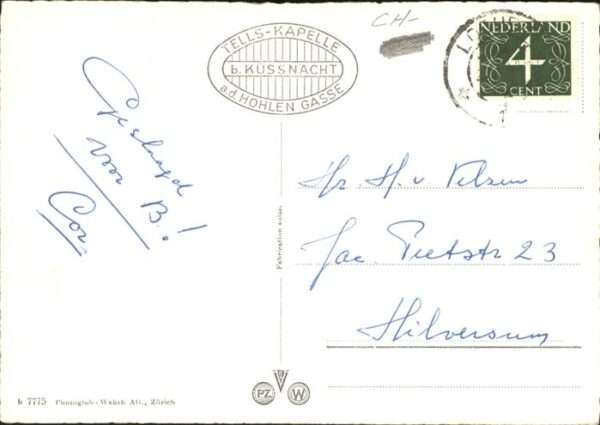 CH-
TELLS-KAPELLE
b. KÜSSNACHT
a.d. HOHLEN GASSE
NEDERLAND
4
CENT
Geslaagd
voor B.!
Cor.
Hr. H. v Velzen
Jac. Pietstr 23
Hilversum
Fabrication suisse.
PZ
W
b 7775 Photoglob-Wehrli AG., Zürich